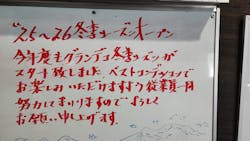 "25〜26冬季シーズンオープン
今年度もグランデコ冬季シーズンが
スタート致しました。ベストコンディションで
お楽しみいただけますよう従業員一同
努力してまいりますのでよろしく
お願い申し上げます。